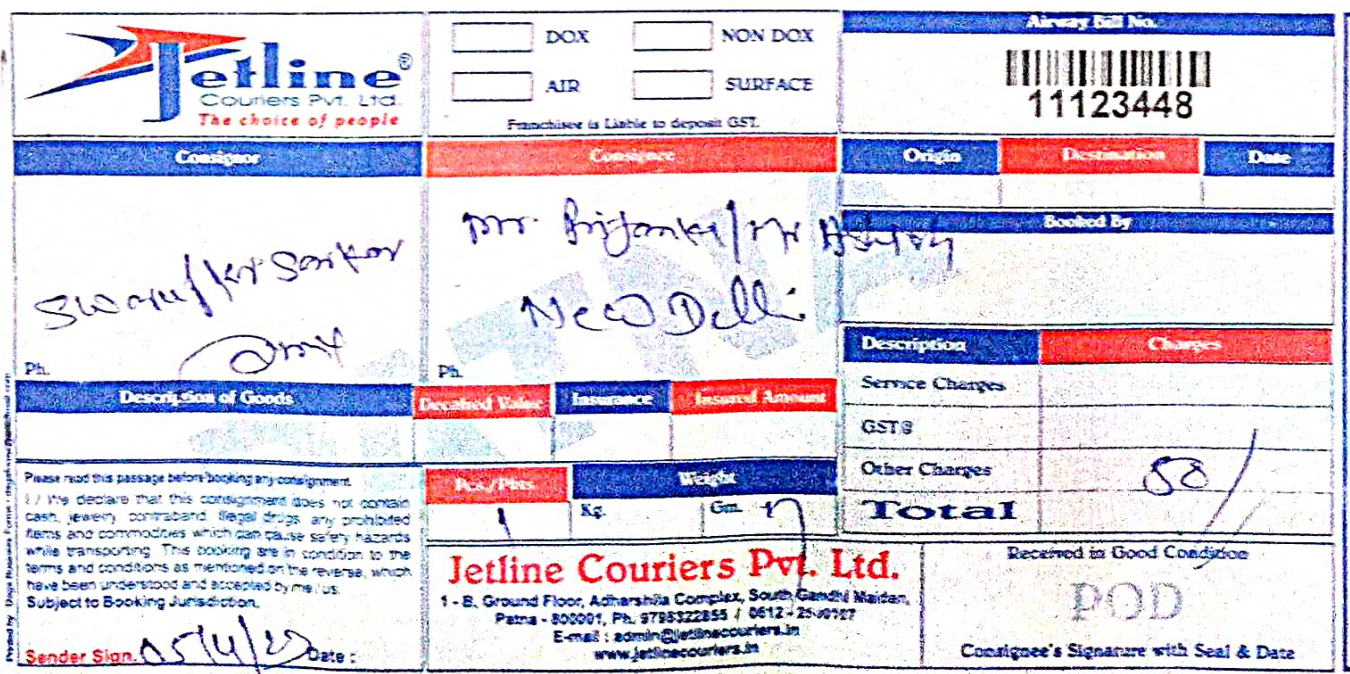 Jetline®
Couriers Pvt. Ltd.
The choice of people
DOX
NON DOX
AIR
SURFACE
Franchisee is Liable to deposit GST.
Airway Bill No.
11123448
Consignor
Consignee
Origin
Destination
Date
Sarkar
Mr.
New Delhi
Ph.
Ph.
Booked By
Description
Charges
Service Charges
GST
Other Charges
50/
Total
Description of Goods
Decalred Value
Insurance
Insured Amount
Pcs./Pkts.
Weight
1
Kg.
Gm.
Please read this passage before booking any consignment.
I / We declare that this consignment does not contain
cash, jewelry, contraband, illegal drugs, any prohibited
items and commodities which can cause safety hazards
while transporting. This booking are in condition to the
terms and conditions as mentioned on the reverse, which
have been understood and accepted by me / us.
Subject to Booking Jurisdiction.
Sender Sign.
05/4/
Date :
Jetline Couriers Pvt. Ltd.
1 - B, Ground Floor, Adharshila Complex, South Gandhi Maidan,
Patna - 800001, Ph. 9798322855 / 0612 -
E-mail : admin@jetlinecouriers.in
www.jetlinecouriers.in
Received in Good Condition
POD
Consignee's Signature with Seal & Date